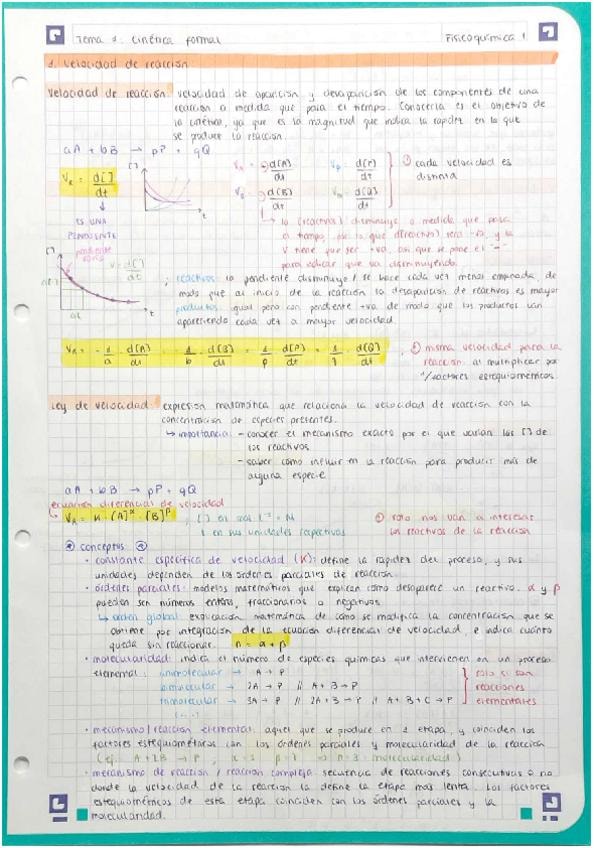 Tema 1: Cinética formal
Fisicoquímica 1
1. Velocidad de reacción
Velocidad de reacción: velocidad de aparición y desaparición de los componentes de una
reacción a medida que pasa el tiempo. Conocerla es el objetivo de
la cinética, ya que es la magnitud que indica la rapidez en la que
se produce la reacción.
aA + bB → pP + qQ
V_R = d[ ]/dt
[ ]
t
↓
ES UNA
PENDIENTE
-d[A]/dt
d[P]/dt
-d[B]/dt
d[Q]/dt
① cada velocidad es
distinta
↳ la [reactivos] disminuye a medida que pasa
el tiempo, por lo que d[reactivo] será -va, y la
V tiene que ser +va, así que se pone el "-"
para indicar que va disminuyendo.
[ ]
t
reactivos: la pendiente disminuye / se hace cada vez menos empinada, de
modo que al inicio de la reacción la desaparición de reactivos es mayor
productos: igual pero con pendiente +va de modo que los productos van
apareciendo cada vez a mayor velocidad.
V_R = -1/a · d[A]/dt = -1/b · d[B]/dt = 1/p · d[P]/dt = 1/q · d[Q]/dt
misma velocidad para la
reacción al multiplicar por
1/factores estequiométricos.
Ley de velocidad: expresión matemática que relaciona la velocidad de reacción con la
concentración de especies presentes.
↳ importancia: - conocer el mecanismo exacto por el que varían las [ ] de
los reactivos
- saber cómo influir en la reacción para producir más de
alguna especie
aA + bB → pP + qQ
ecuación diferencias de velocidad
↳ V_R = K · [A]^α · [B]^β ; [ ] en mol·L⁻¹ = M
t en sus unidades respectivas
solo nos van a interesar
los reactivos de la reacción
conceptos
· constante específica de velocidad (K): define la rapidez del proceso, y sus
unidades dependen de los órdenes parciales de reacción.
· órdenes parciales: modelos matemáticos que explican cómo desaparece un reactivo. α y β
pueden ser números enteros, fraccionarios o negativos.
↳ orden global: explicación matemática de cómo se modifica la concentración que se
obtiene por integración de la ecuación diferencias de velocidad, e indica cuánto
queda sin reaccionar. n = α + β
· molecularidad: indica el número de especies químicas que intervienen en un proceso
elemental: unimolecular → A → P
bimolecular → 2A → P // A + B → P
trimolecular → 3A → P // 2A + B → P // A + B + C → P
(...)
solo si son
reacciones
elementales
· mecanismo / reacción elemental: aquel que se produce en 1 etapa, y coinciden los
factores estequiométricos con los órdenes parciales y molecularidad de la reacción
· mecanismo de reacción / reacción compleja: secuencia de reacciones consecutivas o no
donde la velocidad de la reacción la define la etapa más lenta. Los factores
estequiométricos de esta etapa coinciden con los órdenes parciales y la
molecularidad.